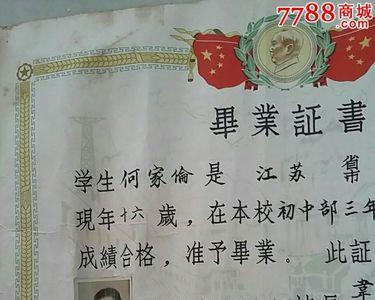 7788商城
.com
畢業証書
学生何家倫是 江苏 省市
現年十六歲，在本校初中部三年
成績合格，准予畢業。 此証